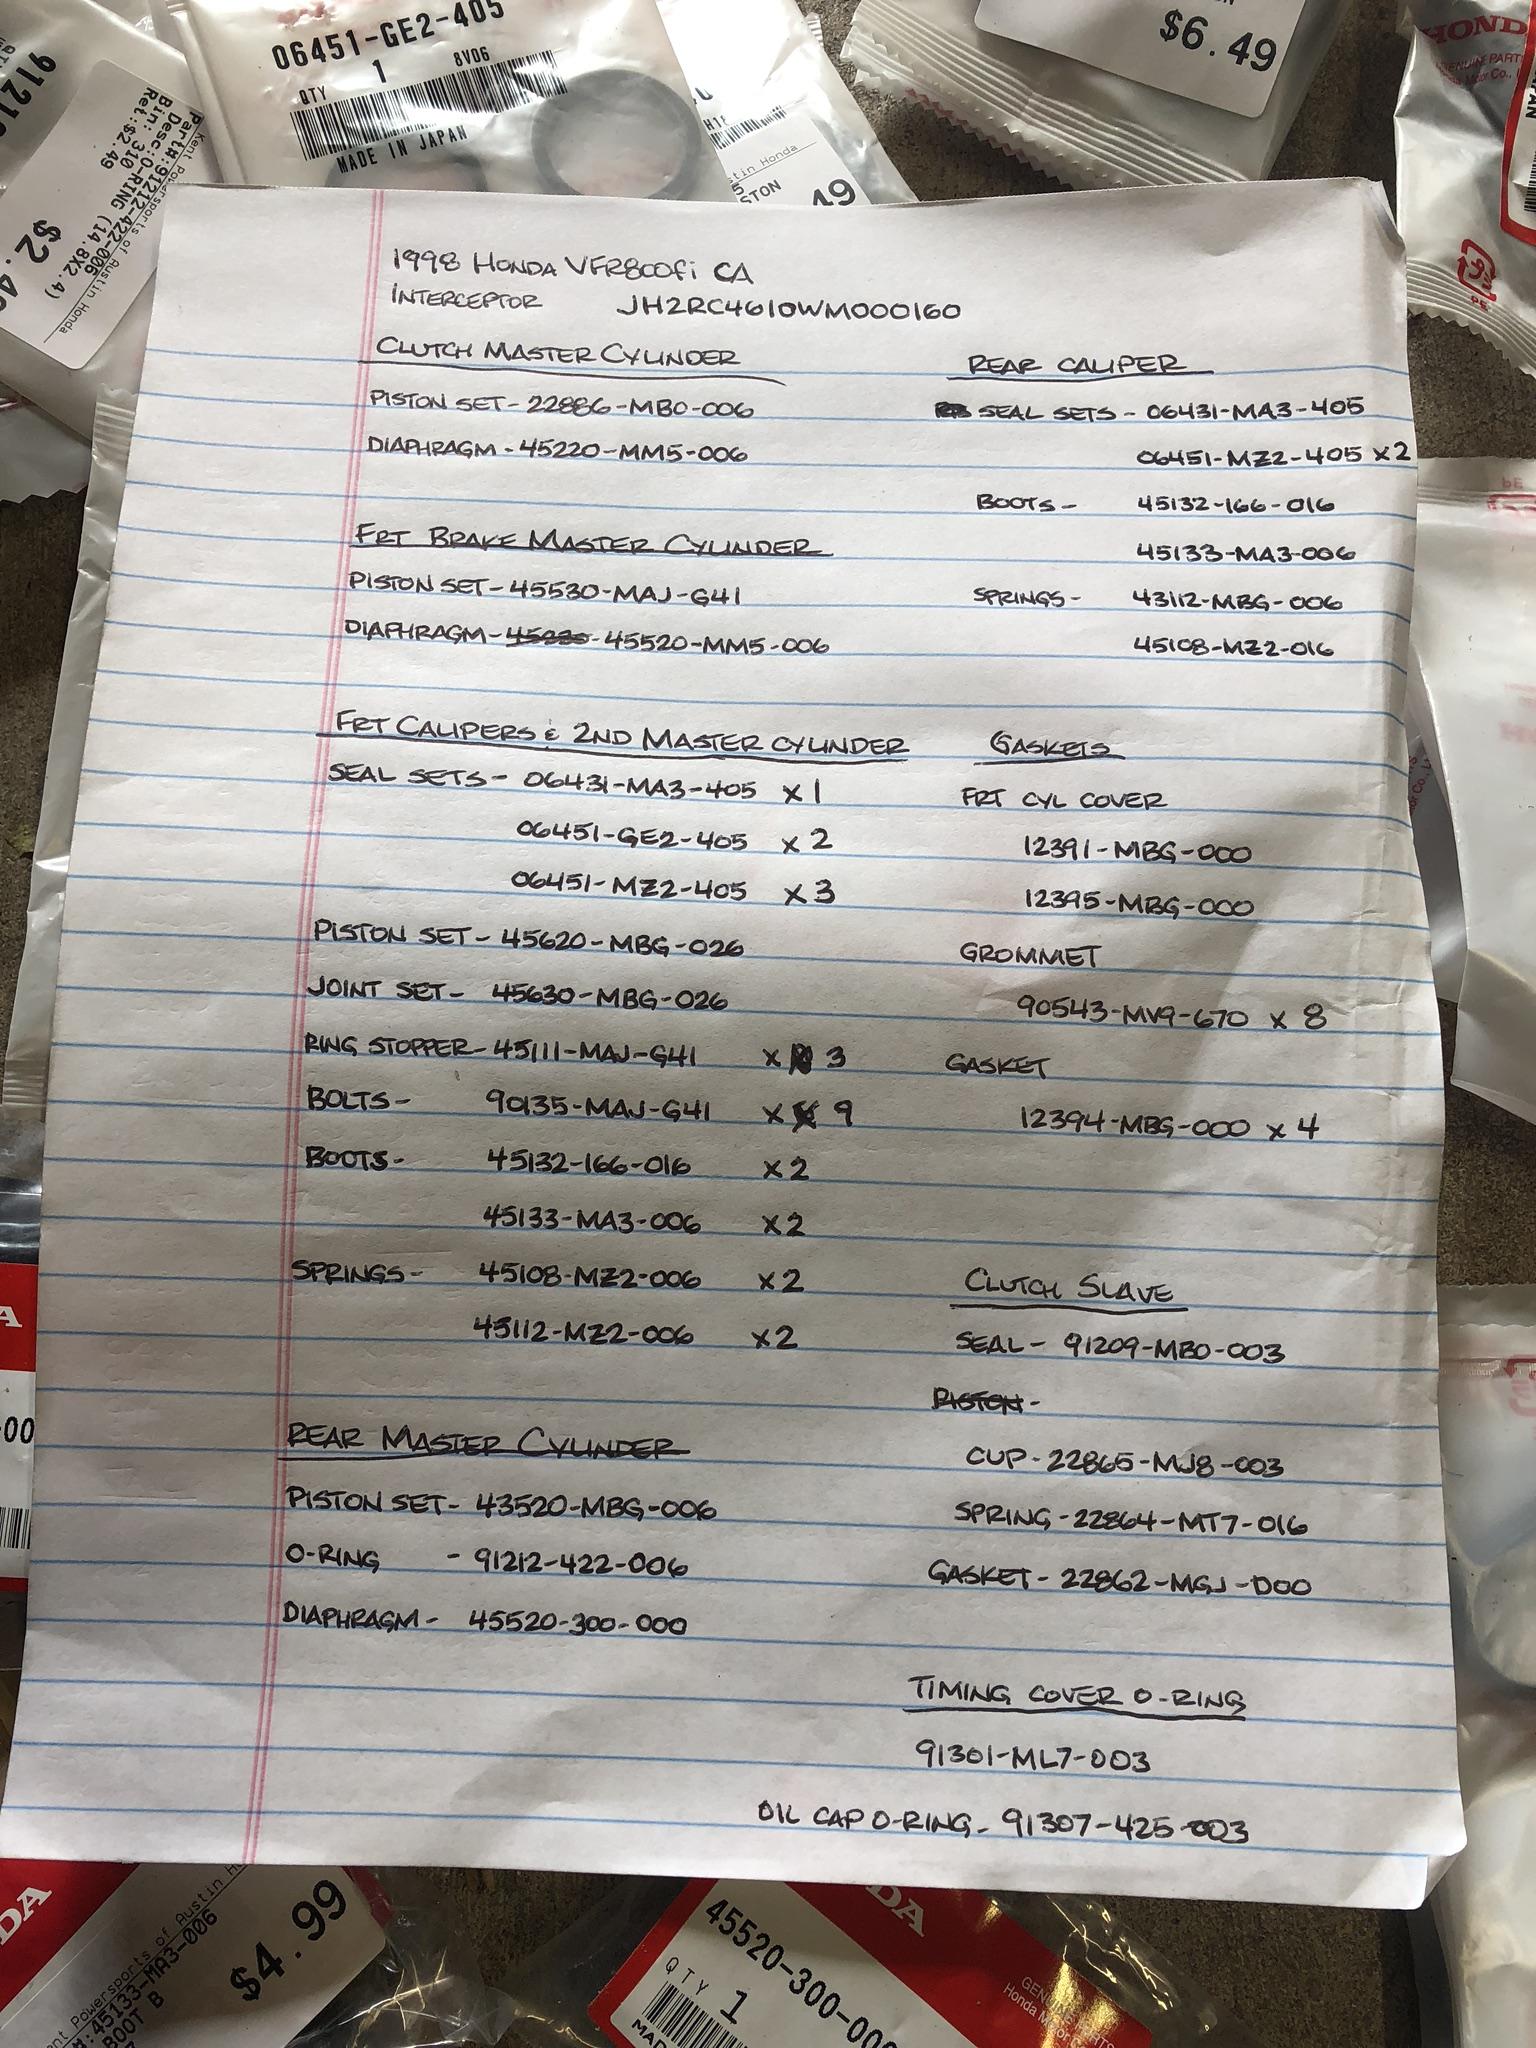 06451-GE2-405
1 8V06
QTY
MADE IN JAPAN
Part#:91212-422-006
Desc:O-RING (14.8X2.4)
Bin: 310
Ret:$2.49
Kent Powersports of Austin Honda
stin Honda
STON
49
$6.49
HONDA
1998 HONDA VFR800fi CA
INTERCEPTOR JH2RC4610WM000160
CLUTCH MASTER CYLINDER
PISTON SET - 22886-MB0-006
DIAPHRAGM - 45220-MM5-006
FRT BRAKE MASTER CYLINDER
PISTON SET - 45530-MAJ-G41
DIAPHRAGM - 45520-MM5-006
FRT CALIPERS & 2ND MASTER CYLINDER
SEAL SETS - 06431-MA3-405 x 1
06451-GE2-405 x 2
06451-MZ2-405 x 3
PISTON SET - 45620-MBG-026
JOINT SET - 45630-MBG-026
RING STOPPER - 45111-MAJ-G41 x 3
BOLTS - 90135-MAJ-G41 x 9
BOOTS - 45132-166-016 x2
45133-MA3-006 x2
SPRINGS - 45108-MZ2-006 x2
45112-MZ2-006 x2
REAR MASTER CYLINDER
PISTON SET - 43520-MBG-006
O-RING - 91212-422-006
DIAPHRAGM - 45520-300-000
REAR CALIPER
SEAL SETS - 06431-MA3-405
06451-MZ2-405 x2
BOOTS - 45132-166-016
45133-MA3-006
SPRINGS - 43112-MBG-006
45108-MZ2-016
GASKETS
FRT CYL COVER
12391-MBG-000
12395-MBG-000
GROMMET
90543-MV9-670 x 8
GASKET
12394-MBG-000 x 4
CLUTCH SLAVE
SEAL - 91209-MB0-003
PISTON -
CUP - 22865-MJ8-003
SPRING - 22864-MT7-016
GASKET - 22862-MGJ-D00
TIMING COVER O-RING
91301-ML7-003
OIL CAP O-RING - 91307-425-003
Powersports of Austin
45133-MA3-006
BOOT B
$4.99
45520-300-00
QTY 1
GENUINE PARTS
Honda Motor